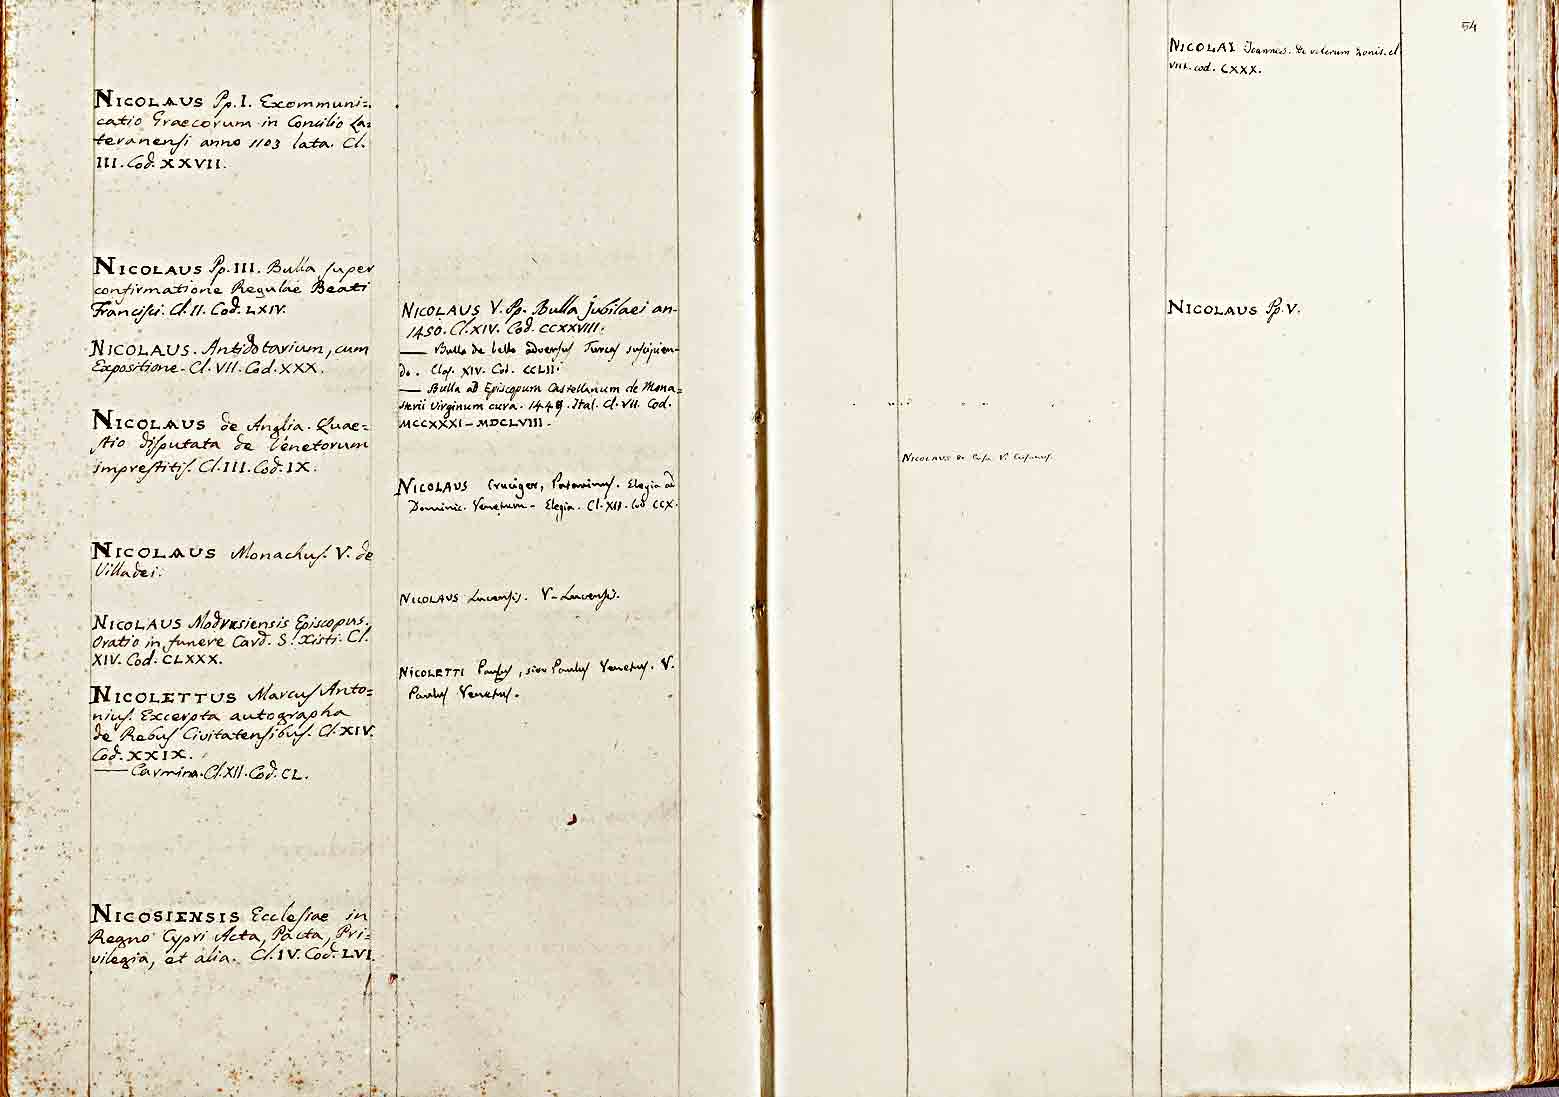 NICOLAUS Pp. I. Excommuni=
catio Graecorum in Concilio La=
teranensi anno 1103 lata. Cl.
III. Cod. XXVII.
NICOLAUS Pp. III. Bulla super
confirmatione Regulae Beati
Francisci. Cl. II. Cod. LXIV.
NICOLAUS. Antidotarium, cum
Expositione. Cl. VII. Cod. XXX.
NICOLAUS de Anglia. Quae=
stio disputata de Venetorum
imprestitis. Cl. III. Cod. IX.
NICOLAUS Monachus. V. de
Villadei.
NICOLAUS Modrusiensis Episcopus.
Oratio in funere Card. S. Xisti. Cl.
XIV. Cod. CLXXX.
NICOLETTUS Marcus Anto=
nius. Excerpta autographa
de Rebus Civitatensibus. Cl. XIV.
Cod. XXIX.
—— Carmina. Cl. XII. Cod. CL.
NICOSIENSIS Ecclesiae in
Regno Cypri Acta, Pacta, Pri=
vilegia, et alia. Cl. IV. Cod. LVI.
NICOLAUS V. Pp. Bulla Jubilaei an-
1450. Cl. XIV. Cod. CCXXVIII.
—— Bulla de bello adversus Turcas suscipien-
do. Clas. XIV. Cod. CCLII.
—— Bulla ad Episcopum Castellanum de Mona=
sterii Virginum cura. 1449. Ital. Cl. VII. Cod.
MCCXXXI – MDCLVIII.
NICOLAUS Cruciger, Patavinus. Elegia ad
Dominic. Venetum – Elegia. Cl. XII. Cod CCX.
NICOLAUS Lucensis. V– Lucensis.
NICOLETTI Paulus, sive Paulus Venetus. V.
Paulus Venetus.
NICOLAUS de Cusa V. Cusanus.
54
NICOLAI Joannes. De veterum zonis. cl
VIII. cod. CXXX.
NICOLAUS Pp. V.